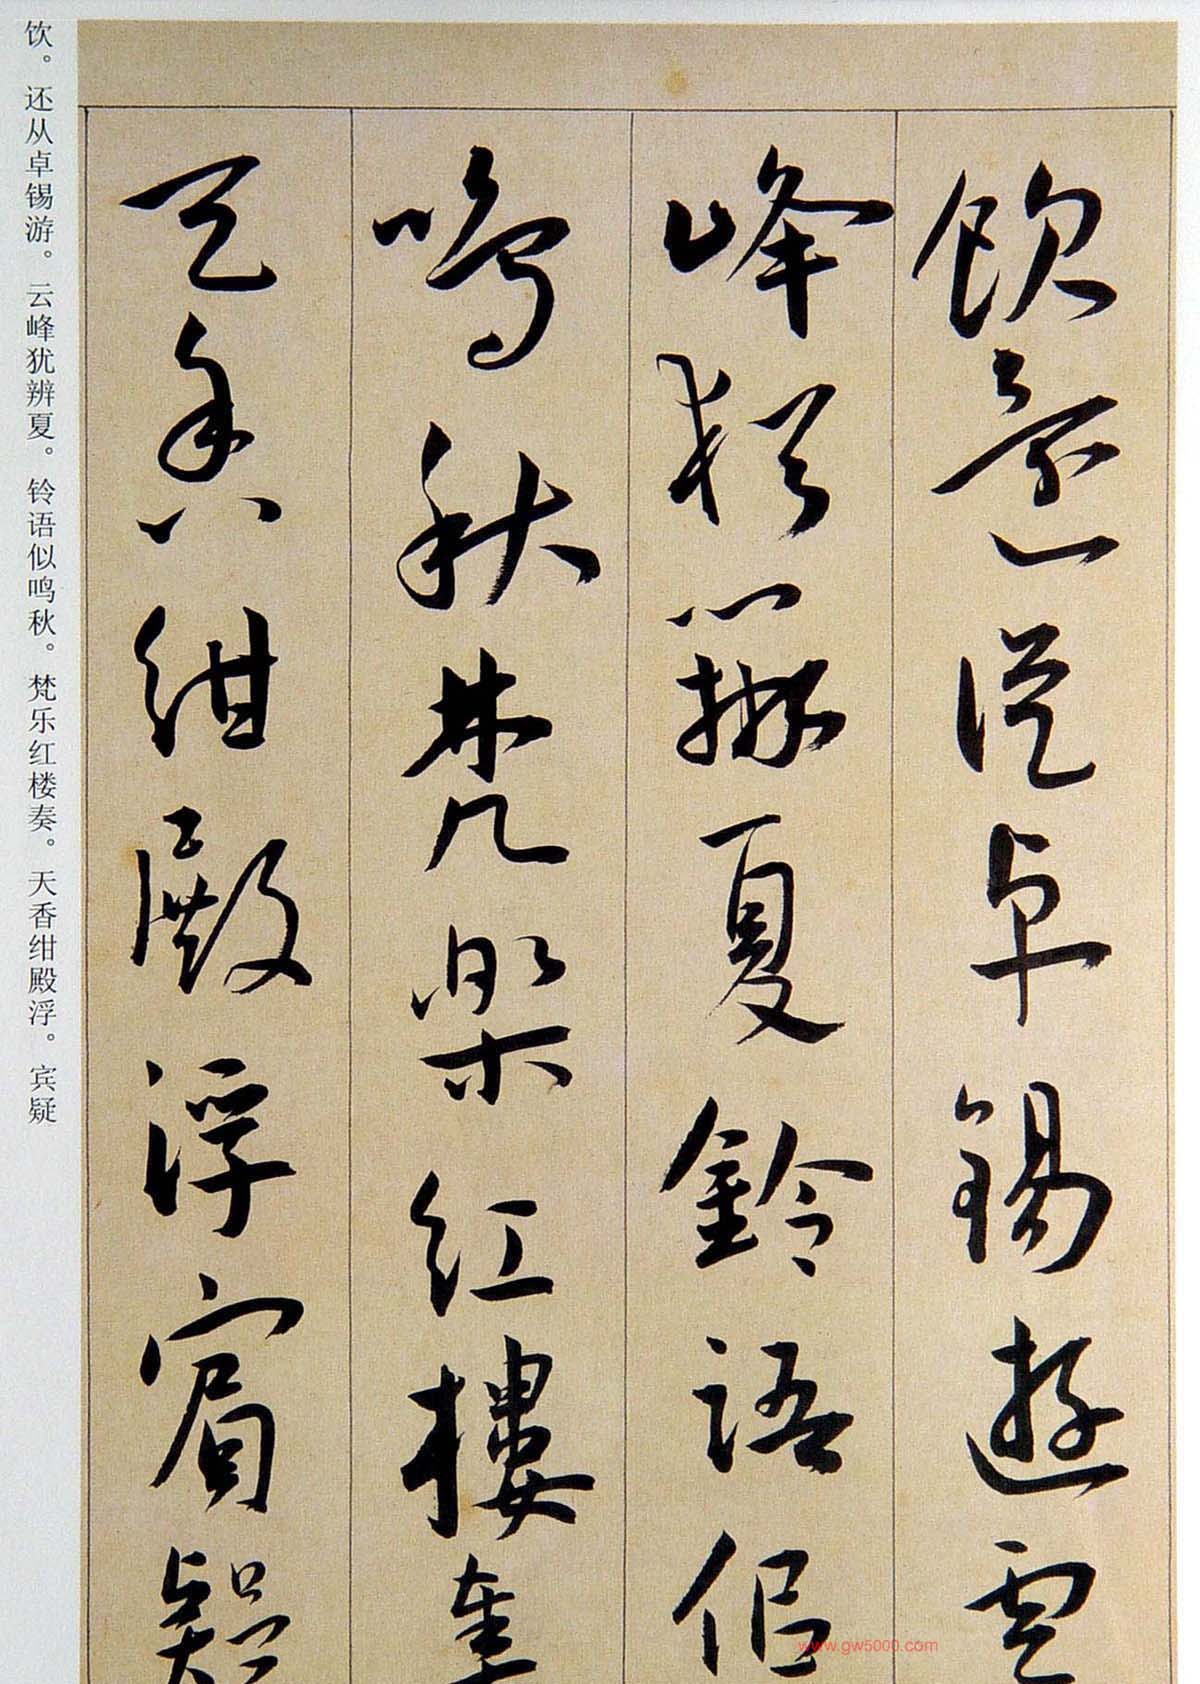 飲還従卓錫遊雲
峰猶辨夏鈴語侣
鳴秋梵樂紅樓奏
天香紺殿浮賓疑
饮。还从卓锡游。云峰犹辨夏。铃语似鸣秋。梵乐红楼奏。天香绀殿浮。宾疑
www.gw5000.com